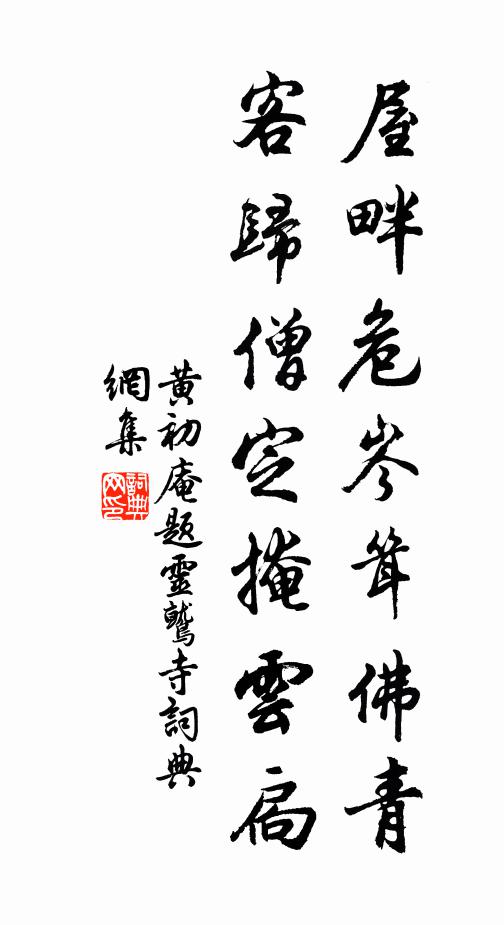 屋畔危岑耸佛青
客歸僧定掩雲扃
黃初庵題靈鷲寺詞典
網集
詞典
网印